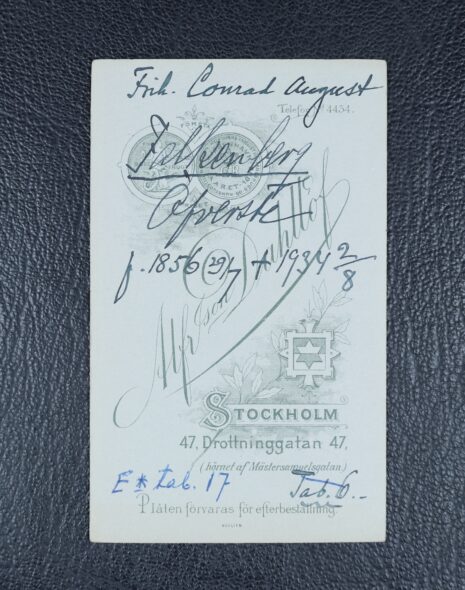 Frih. Conrad August
Telefon Nº 4434.
Falkenberg
Öfverste
f. 1856 29/7 † 1934 2/8
Alfr:son Dahllöf
STOCKHOLM
47, Drottninggatan 47,
(hörnet af Mästersamuelsgatan)
E * tab. 17
Tab. 6.-
Plåten förvaras för efterbeställning.